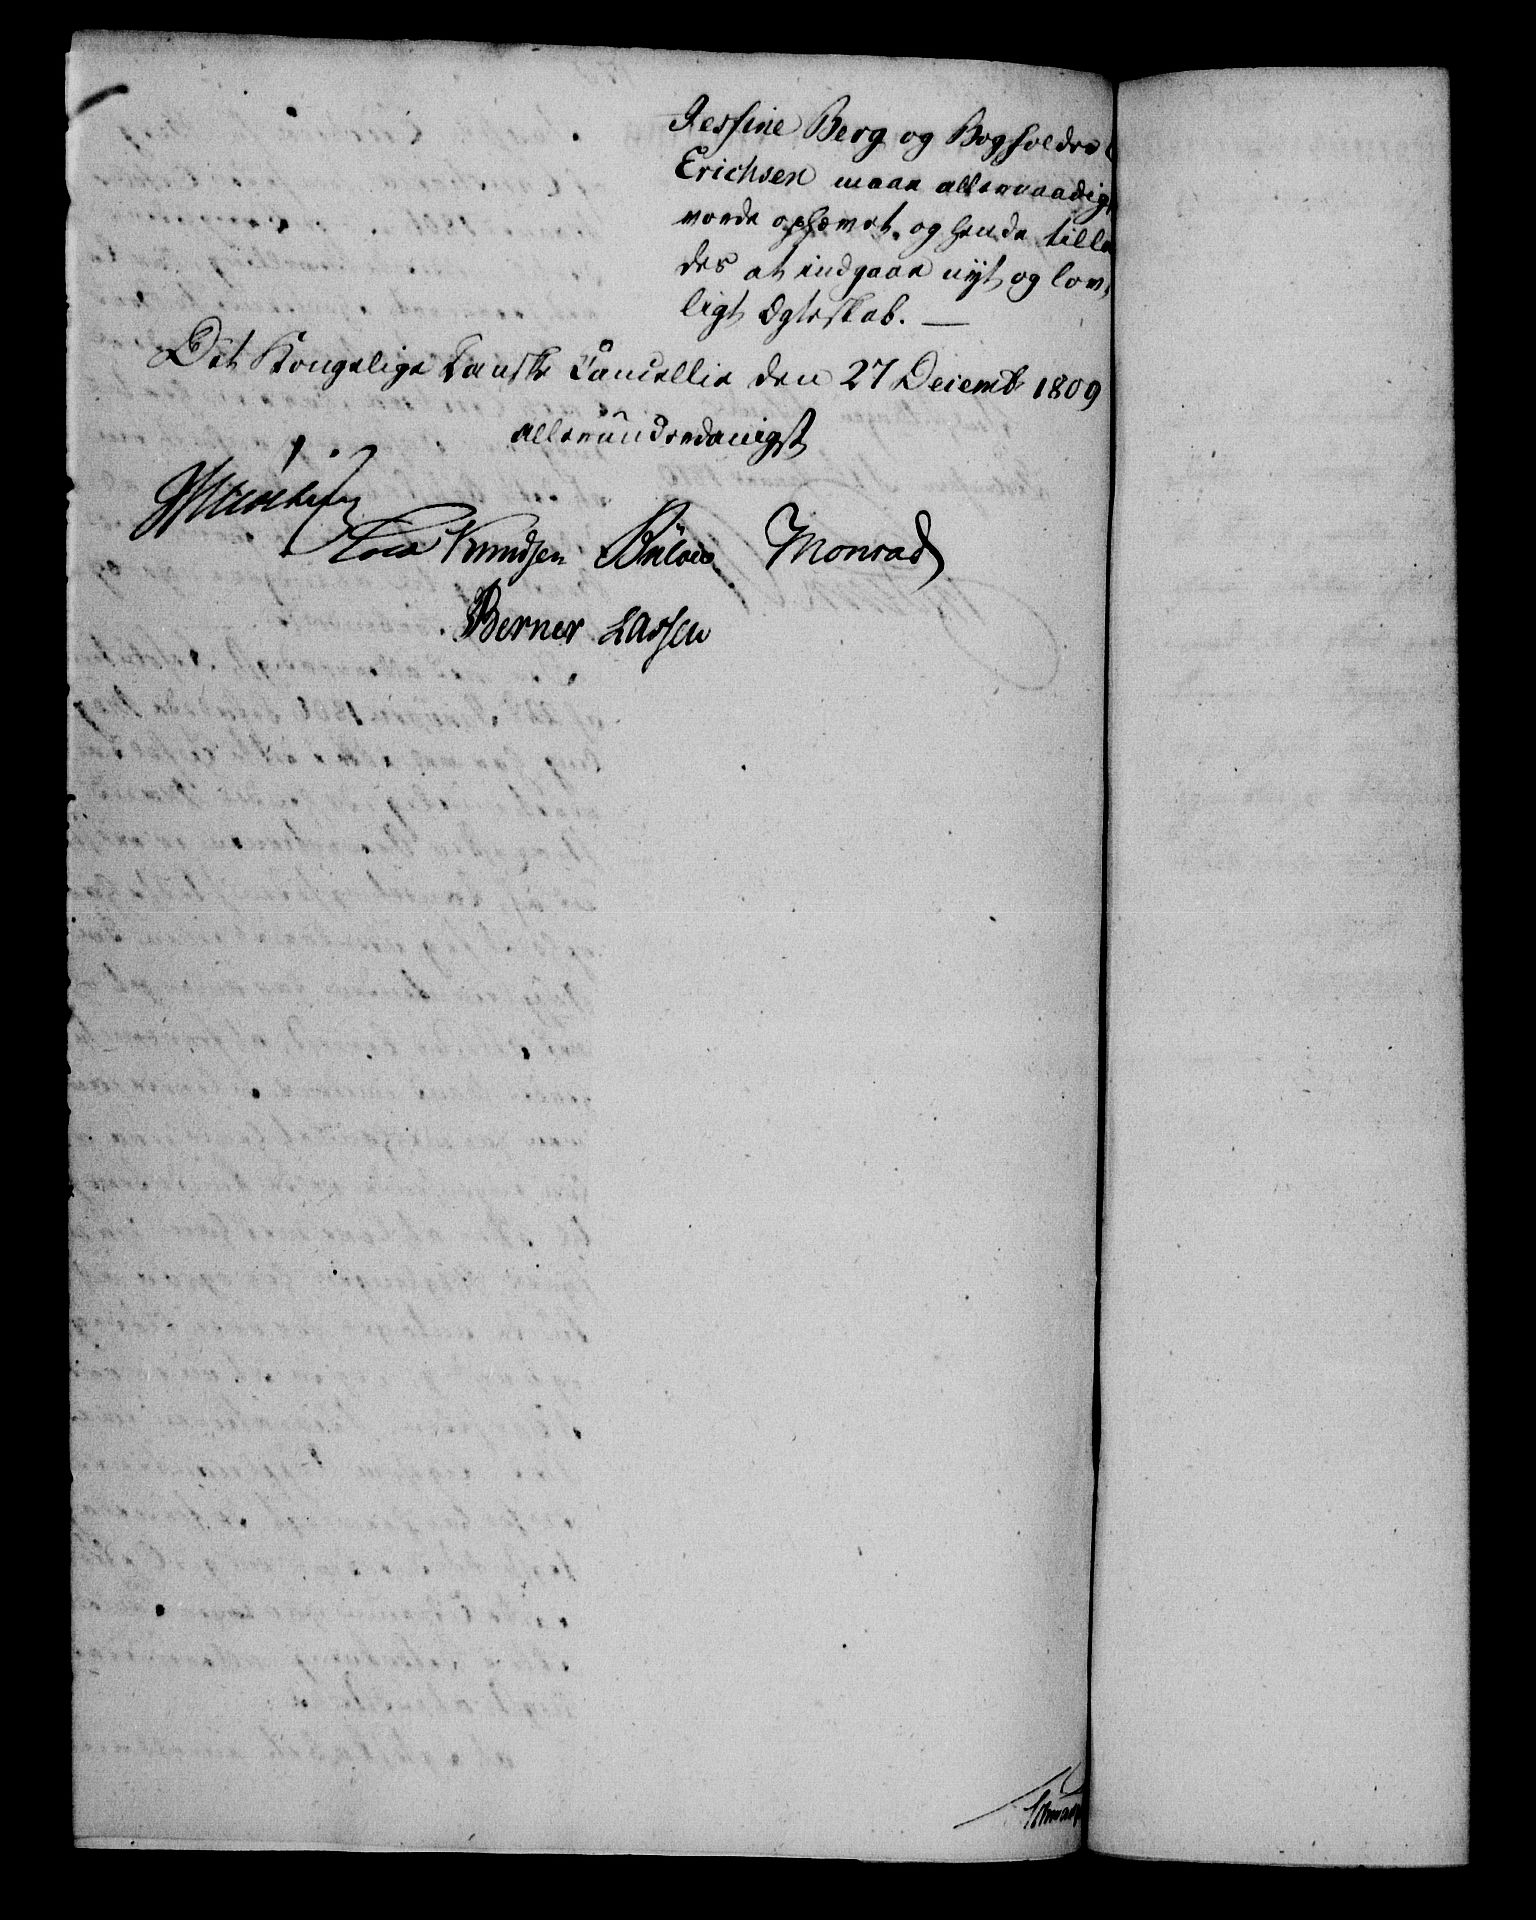 Jessine Berg og Bogholder
Erichsen maae allernaadigst
vorde ophævet, og hende tilla-
des at indgaae nyt og lov-
ligt Ægteskab. —
Det Kongelige Danske Cancellie den 27 Decemb 1809
allerunderdanigst
Cold Knudsen Bülow Monrad
Berner Lassen